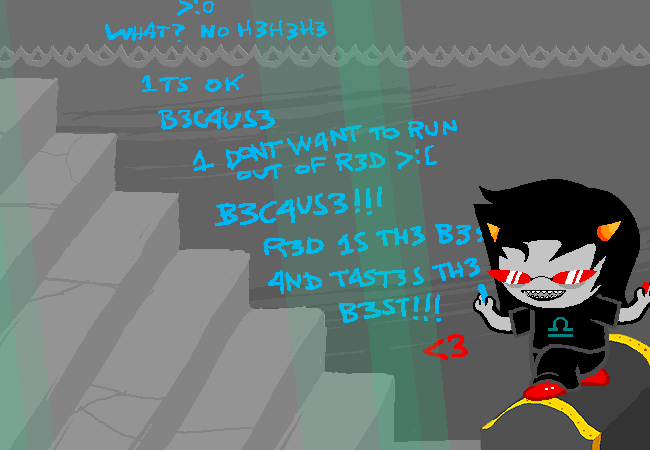 >:O
WH4T? NO H3H3H3
1TS OK
B3C4US3
1 DONT W4NT TO RUN
OUT OF R3D >:[
B3C4US3!!!
R3D 1S TH3 B3S
4ND T4ST3S TH3
B3ST!!!
<3